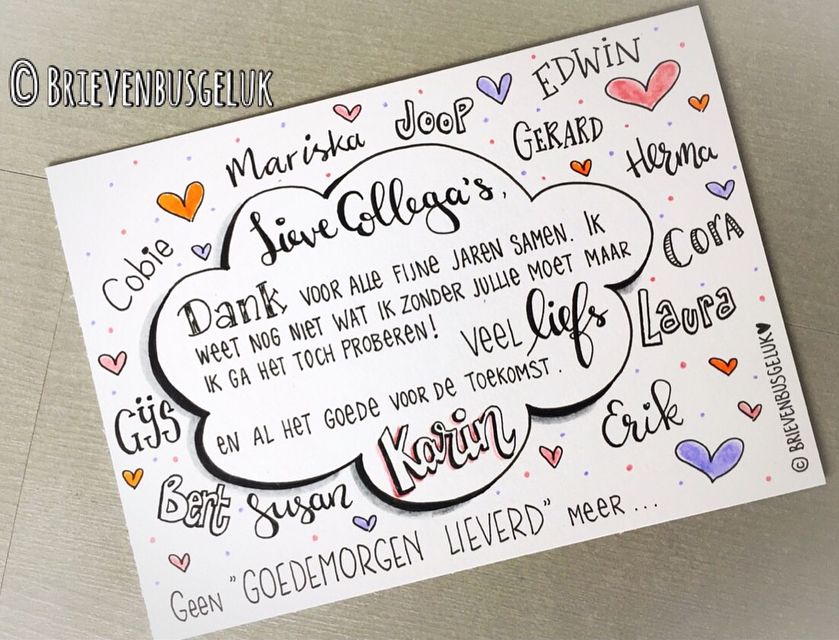 © BRIEVENBUSGELUK
Mariska
JOOP
EDWIN
GERARD
Herma
Cobie
Cora
Laura
Lieve Collega's,
Dank VOOR ALLE FIJNE JAREN SAMEN. IK
WEET NOG NIET WAT IK ZONDER JULLIE MOET MAAR
IK GA HET TOCH PROBEREN!
VEEL liefs
EN AL HET GOEDE VOOR DE TOEKOMST.
Karin
Gijs
Bert
Susan
Erik
GEEN "GOEDEMORGEN LIEVERD" MEER...
© BRIEVENBUSGELUK♥